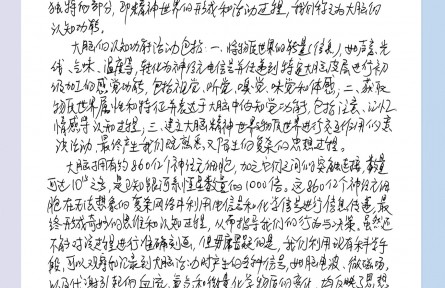 独特的部分,即精神世界的形成和活动过程,我们称之为大脑的
认知功能。
大脑的认知功能活动包括:一、将物质世界的能量(信息)如声音、光
线、气味、温度等,转化为神经元电信号并传递到特定大脑皮层进行初
级加工的感觉功能,包括视觉、听觉、嗅觉、味觉和体感;二、获取
物质世界属性和特征并表达于大脑中的知觉功能,包括注意、记忆
情感等认知过程;三、建立大脑精神世界与物质世界进行交互作用的意
决活动,最终产生我们既熟悉又陌生的复杂的思想过程。
大脑拥有约860亿个神经元细胞,加之它们之间的突触连接,数量
可达10¹⁵之多,是已知银河系恒星数量的1000倍。这860亿个神经元细
胞在无法想象的复杂网络中利用电信号和化学信号进行信息传递,最
终形成奇妙的思维和认知过程,从而指导我们的行为与决策。虽然还
不能对该过程进行准确刻画,但毋庸置疑的是,我们利用现有科学手
段,可以观察和记录到大脑活动时产生的各种信号,如脑电波、微磁场,
以及代谢引起的血流、氧含和微量化学物质的变化,均反映了思想